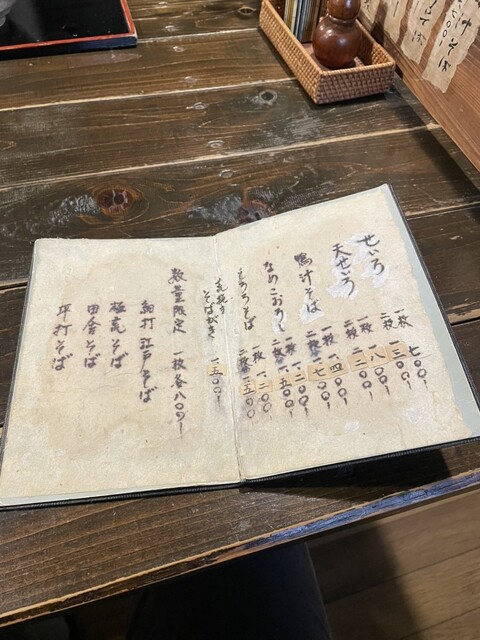 せいろ 一枚 七〇〇!
二枚 一三〇〇!
天せいろ 一枚 一八〇〇!
二枚 二一〇〇!
鴨汁そば 一枚 一四〇〇!
二枚 一七〇〇!
なめこおろし 一枚 一二〇〇!
二枚 一五〇〇
とろろそば 一枚 一二〇〇
二枚 一五〇〇
荒挽き
そばがき 一五〇〇!
数量限定 一枚各八〇〇!
細打江戸そば
極荒そば
田舎そば
平打そば